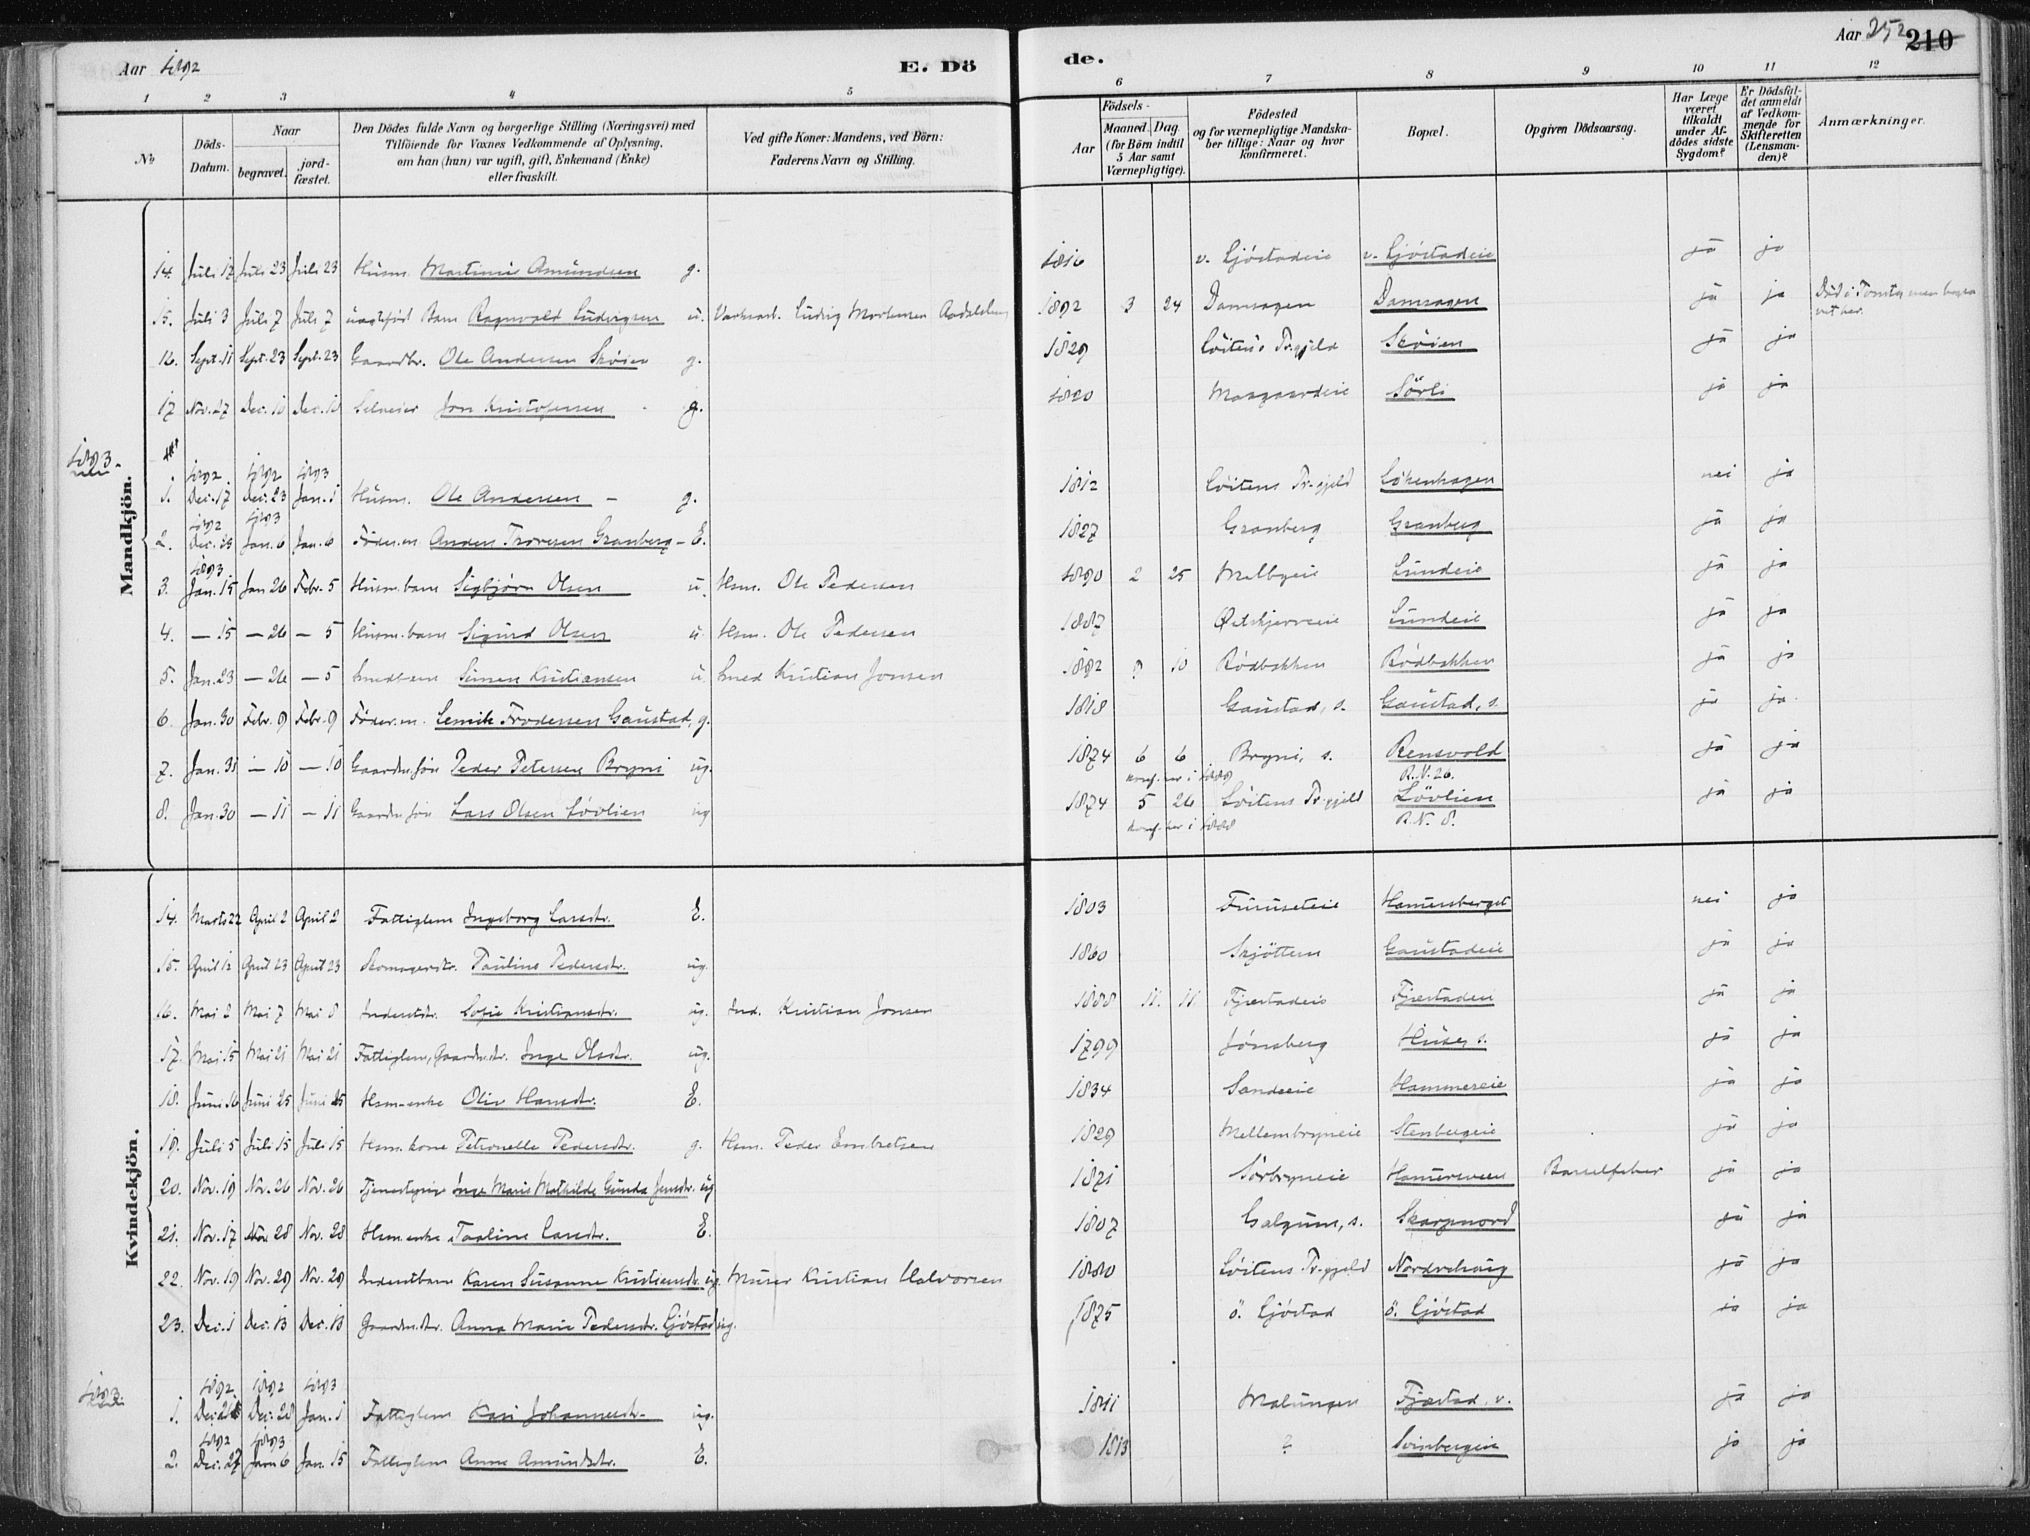 Aar 1892
E. Dö
de.
Aar 252 210
1 2 3 4 5 6 7 8 9 10 11 12
No
Döds-Datum.
Naar begravet. jord-fæstet.
Den Dödes fulde Navn og borgerlige Stilling (Næringsvei) med Tilföiende for Voxnes Vedkommende af Oplysning, om han (hun) var ugift, gift, Enkemand (Enke) eller fraskilt.
Ved gifte Koner: Mandens, ved Börn: Faderens Navn og Stilling.
Födsels- Aar Maaned. Dag. (for Börn indtil 5 Aar samt Værnepligtige).
Födested og for værnepligtige Mandskaber tillige: Naar og hvor konfirmeret.
Bopæl.
Opgiven Dödsaarsag.
Har Læge været tilkaldt under Afdödes sidste Sygdom?
Er Dödsfaldet anmeldt af Vedkommende for Skifteretten (Lensmanden)?
Anmærkninger.
Mandkjön.
14. Juli 12 Juli 23 Juli 23 Husm. Martinus Amundsen g. 1816 v. Gjöstadeie v. Gjöstadeie ja ja
15. Juli 3 Juli 7 Juli 7 uægtefød Barn Ragnvald Ludvigsen u. Ludvig Mortensen 1892 3 24 Damsagen Damsagen ja ja
16. Sept. 11 Sept. 23 Sept. 23 Gaardbr. Ole Andersen Skøien g. 1829 Löitens Pr.gjeld Skøien ja ja
17 Nov. 27 Dec. 10 Dec. 10 Selveier Jon Kristofersen g. 1820 Maagaardeie Sörli ja ja
1893.
1. 1892 Dec. 17 1892 Dec. 23 1893 Jan. 1 Husm. Ole Andersen - g. 1812 Löitens Pr.gjeld Løkenhagen nei ja
2. 1892 Dec. 28 1893 Jan. 6 Jan. 6 Föder.m. Anders Trovesen Granberg - E. 1827 Granberg Granberg ja ja
3. 1893 Jan. 15 Jan 26 Febr. 5 Husm. barn Sigbjørn Olsen u. Hsm. Ole Pedersen 1890 2 25 Melbyeie Lundeie ja ja
4. - 15 - 26 - 5 Husm. barn Sigurd Olsen u. Hsm. Ole Pedersen 1887 Lundeie ja ja
5. Jan. 23 - 26 - 5 Smedbarn Simen Kristiansen u. Smed Kristian Jonsen 1892 9 10 Rödbakken Rödbakken ja ja
6. Jan. 30 Febr. 9 Febr. 9 Föder.m. Semik Frodersen Gaustad, g. 1818 Gaustad, s. Gaustad, s. ja ja
7. Jan. 31 - 10 - 10 Gaardm. søn Peder Petersen Bryni ug. 1874 6 6 Bryni, s. Rensvold ja ja
konf. her i R.N. 26.
8. Jan. 30 - 11 - 11 Gaardm. søn Lars Olsen Løvlien ug 1874 5 26 Löitens Pr.gjeld Lövlien ja ja
konf. her i 1888 R.N. 8.
Kvindekjön.
14. Marts 22 April 2 April 2 Fattiglem Ingeborg Larsdtr. E. 1803 Furuseteie Hamersberget nei ja
15. April 12 April 23 April 23 Skomagerdtr. Pauline Pedersdtr. ug. 1860 Skjöttem Gaustadeie ja ja
16. Mai 2 Mai 7 Mai 8 Inderstdtr. Sofie Kristiansdtr. ug. Ind. Kristian Jonsen 1888 11. 11 Fjæstadeie Fjæstadeie ja ja
17. Mai 15 Mai 21 Mai 21 Fattiglem, Gaardm.dtr. Inge Olsdtr. ug. 1799 Jönsberg Huse, s. ja ja
18. Juni 16 Juni 25 Juni 25 Hsm.enke Oliv Hansdtr. E. 1834 Sandeeie Hammereie ja ja
19. Juli 5 Juli 15 Juli 15 Hsm. kone Petronelle Pedersdtr. g. Hsm. Peder Embretsen 1829 Mellembryneie Stenbergeie ja ja
20. Nov. 19 Nov. 26 Nov. 26 Tjenestepige Inge Marie Mathilde Gunda Jensdtr. ug 1871 Sörbryneie Hamersveen Barselfeber ja ja
21. Nov. 17 Nov. 28 Nov. 28 Hsm. enke Pauline Larsdtr. E. 1807 Galgum, s. Skarpnord ja ja
22. Nov. 19 Nov. 29 Nov. 29 Inderstbarn Karen Susanne Kristiansdtr. ug. Murer Kristian Halvorsen 1880 Löitens Pr.gjeld Nordrehaug ja ja
23. Dec. 1 Dec. 13 Dec. 13 Gaardm.dtr. Anna Marie Pedersdtr. Gjöstad ug. 1875 ö. Gjöstad ö. Gjöstad ja ja
1893.
1. 1892 Dec. 21 1892 Dec. 28 1893 Jan. 1 Fattiglem Kari Johannesdtr. ug. 1811 Malungen Fjæstad, v. ja ja
2. 1892 Dec. 27 1893 Jan. 6 Jan. 15 Fattiglem Anne Amundsdtr. E. 1813 ? Svinbergeie ja ja